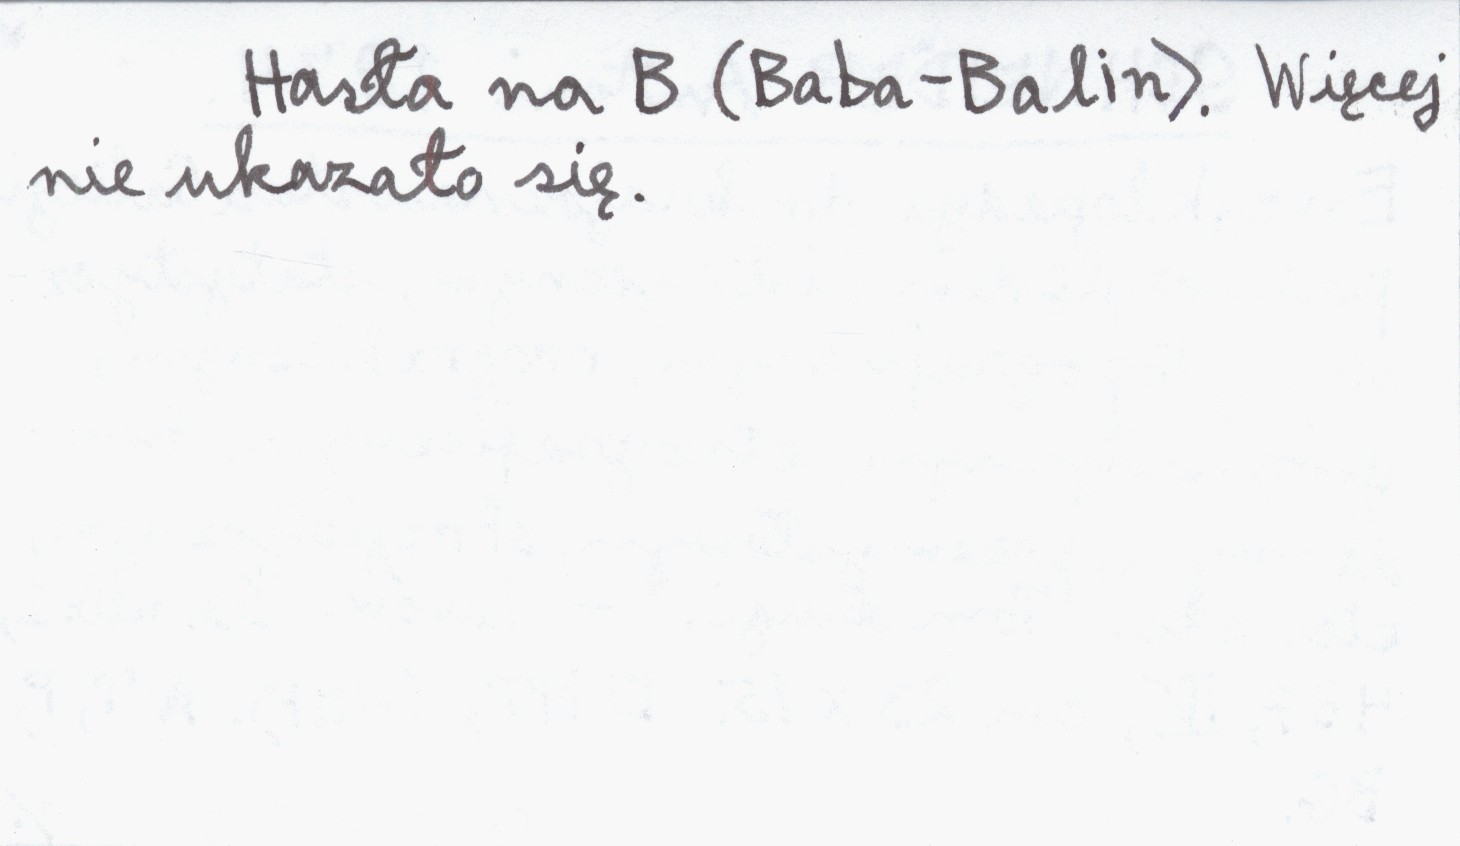 Hasła na B (Baba-Balin). Więcej
nie ukazało się.